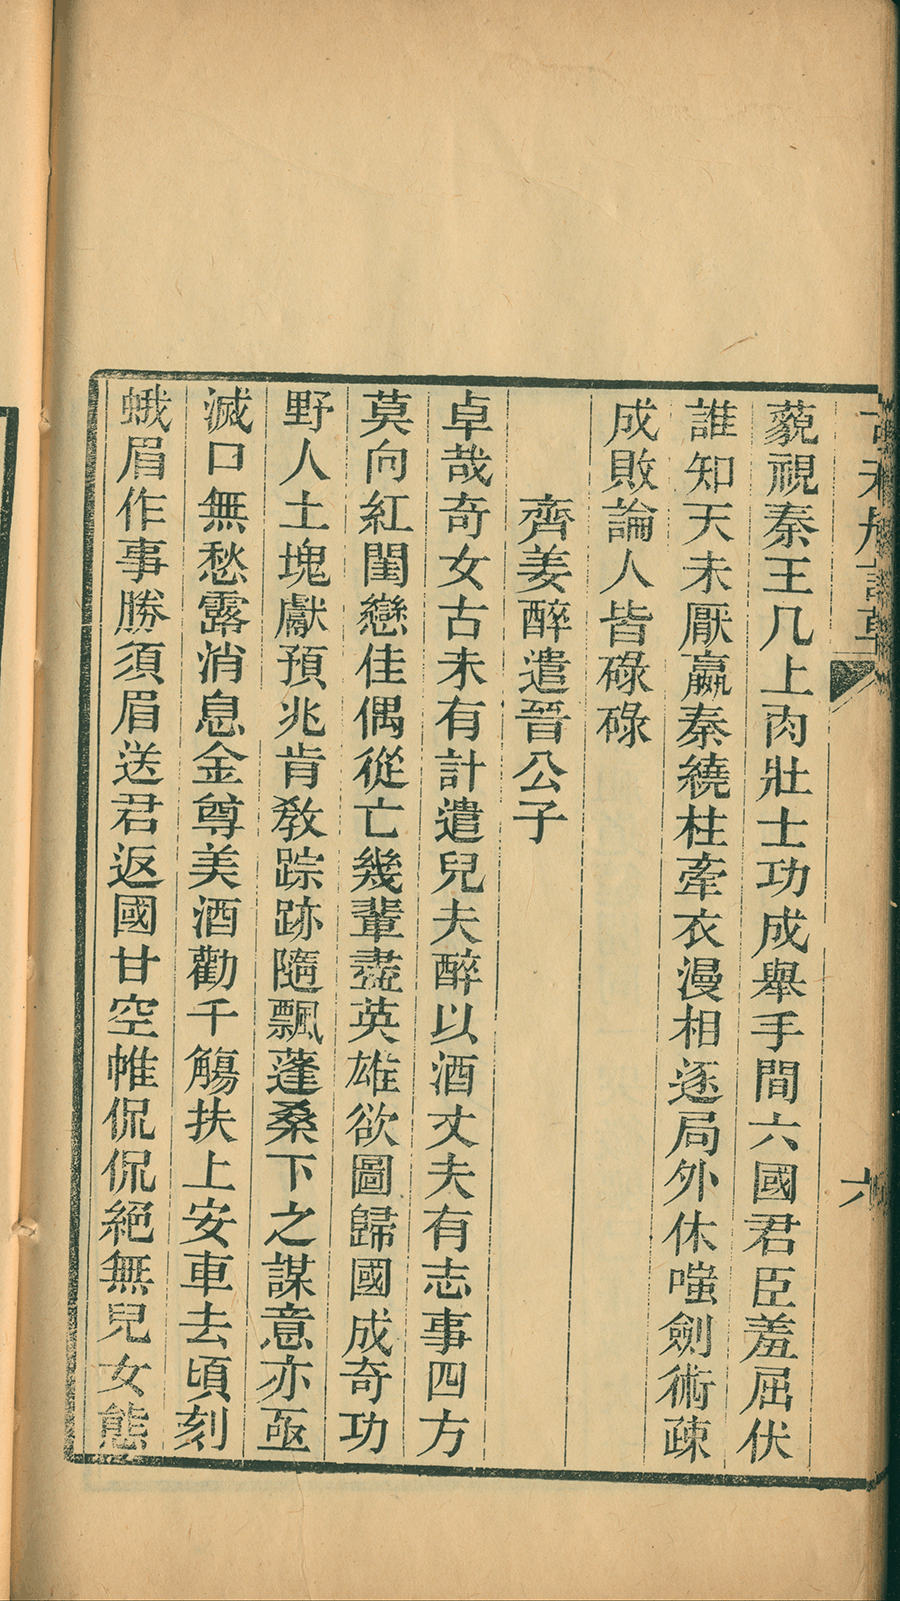 藐視秦王几上肉壯士功成舉手間六國君臣羞屈伏
誰知天未厭嬴秦繞柱牽衣漫相逐局外休嗤劍術疎
成敗論人皆碌碌
齊姜醉遣晉公子
卓哉奇女古未有計遣兒夫醉以酒丈夫有志事四方
莫向紅閨戀佳偶從亡幾輩盡英雄欲圖歸國成奇功
野人土塊獻預兆肯敎踪跡隨飄蓬桑下之謀意亦亟
滅口無愁露消息金尊美酒勸千觴扶上安車去頃刻
蛾眉作事勝須眉送君返國甘空帷侃侃絕無兒女態